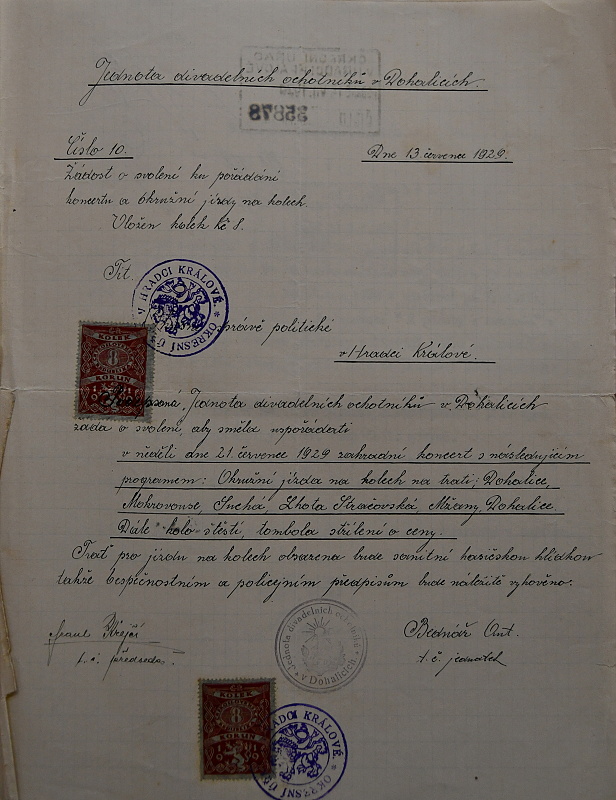 Jednota divadelních ochotníků v Dohalicích.
35878
Číslo 10.
Dne 13 července 1929.
Žádost o svolení ku pořádání
koncertu a okružní jízdy na kolech
Vložen kolek Kč 8.
Tit.
V HRADCI KRÁLOVÉ. * OKRESNÍ
správě politické
v Hradci Králové.
KOLEK
8
KORUN
Jednota divadelních ochotníků v Dohalicích
žádá o svolení, aby směla uspořádati
v neděli dne 21 července 1929 zahradní koncert s následujícím
programem: Okružní jízda na kolech na trati: Dohalice,
Mokrovouse, Suchá, Lhota Stračovská, Mžany, Dohalice.
Dále "kolo štěstí, tombola střílení o ceny.
Trať pro jízdu na kolech obsazena bude sanitní hasičskou hlídkou
takže bezpečnostním a policejním předpisům bude náležitě vyhověno.
Bednář Ant.
t. č. předseda.
t. č. jednatel
Jednota divadelních ochotníků
v Dohalicích.
KOLEK
8
KORUN
HRADCI KRÁLOVÉ. * OKRESNÍ